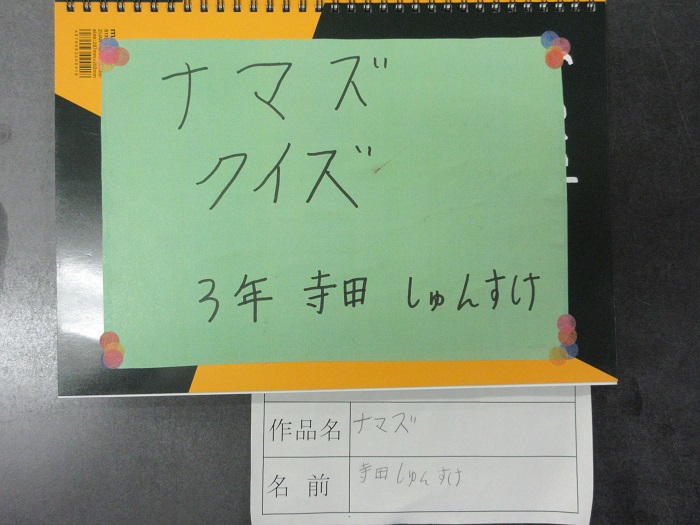 ナマズ
クイズ
3年 寺田 しゅんすけ
作品名 ナマズ
名前 寺田しゅんすけ